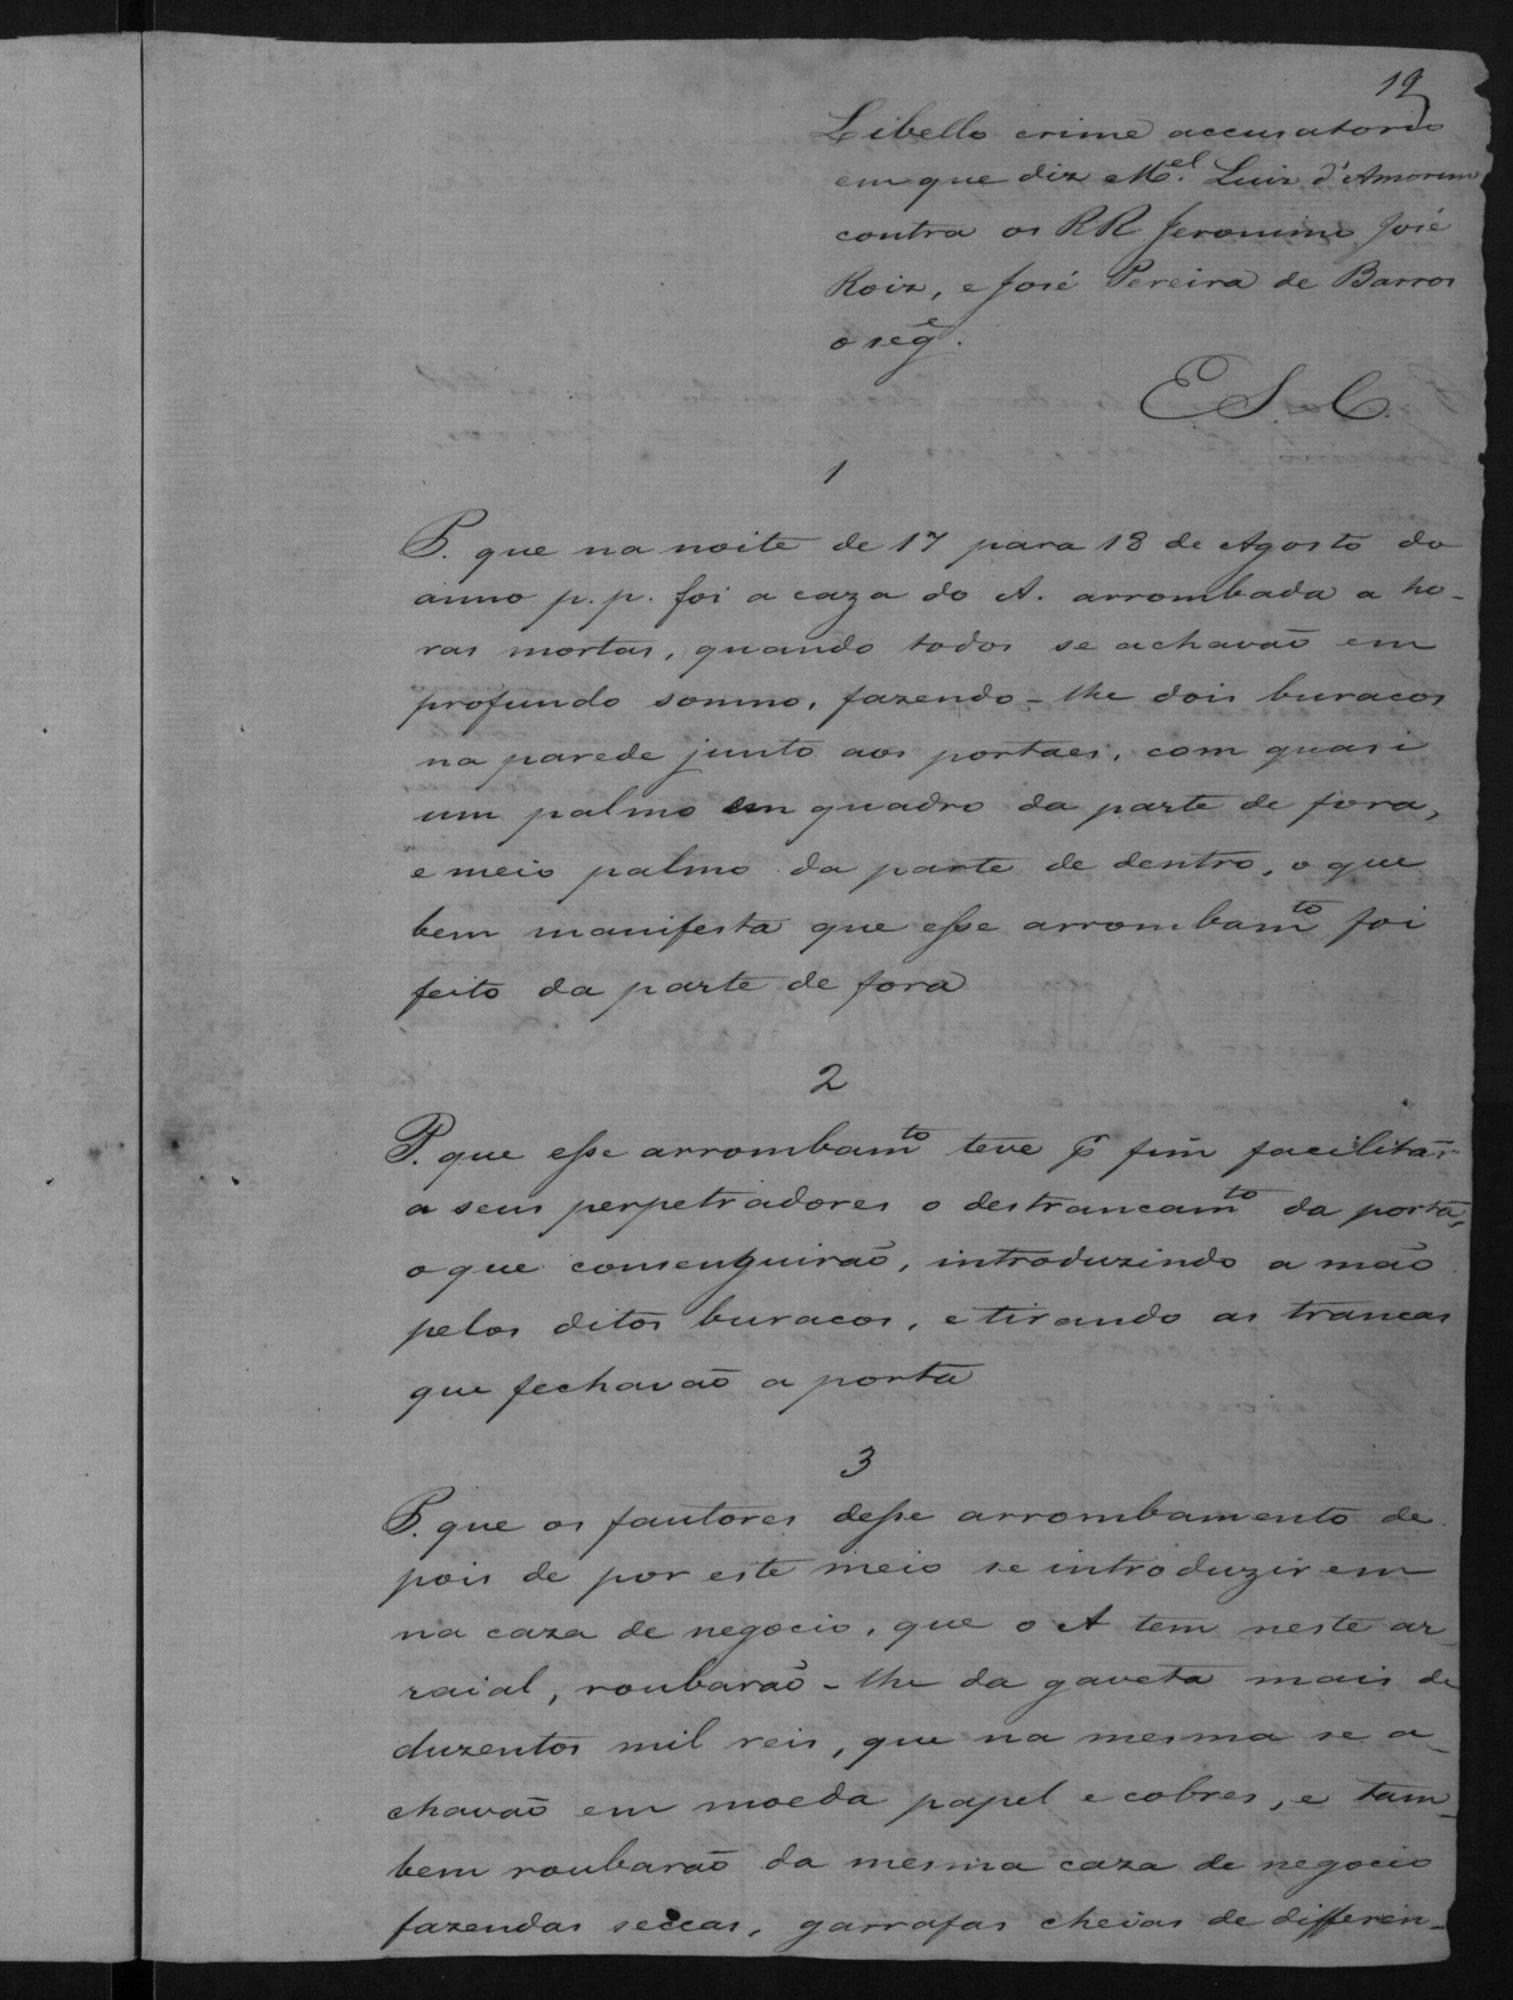 19
Libello crime accusatorio
em que diz M.el Luiz d'Amorim
contra os RR Jeronimo José
Roiz, e José Pereira de Barros
o seg.e
E. S. C.
1
P. que na noite de 17 para 18 de Agosto do
anno p.p. foi a caza do A. arrombada a ho-
ras mortas, quando todos se achavão em
profundo somno, fazendo-lhe dois buracos
na parede junto aos portaes, com quasi
um palmo em quadro da parte de fora,
e meio palmo da parte de dentro, o que
bem manifesta que esse arrombamto foi
feito da parte de fora
2
P. que esse arrombamto teve pr fim facilitar
a seus perpetradores o destrancamto da porta,
o que consenguirão, introduzindo a mão
pelos ditos buracos, e tirando as trancas
que fechavão a porta
3
P. que os fautores desse arrombamento de
pois de por este meio se introduzirem
na caza de negocio, que o A tem neste ar_
raial, roubarão-lhe da gaveta mais de
duzentos mil reis, que na mesma se a_
chavão em moeda papel e cobres, e tam_
bem roubarão da mesma caza de negocio
fazendas seccas, garrafas cheias de differen_